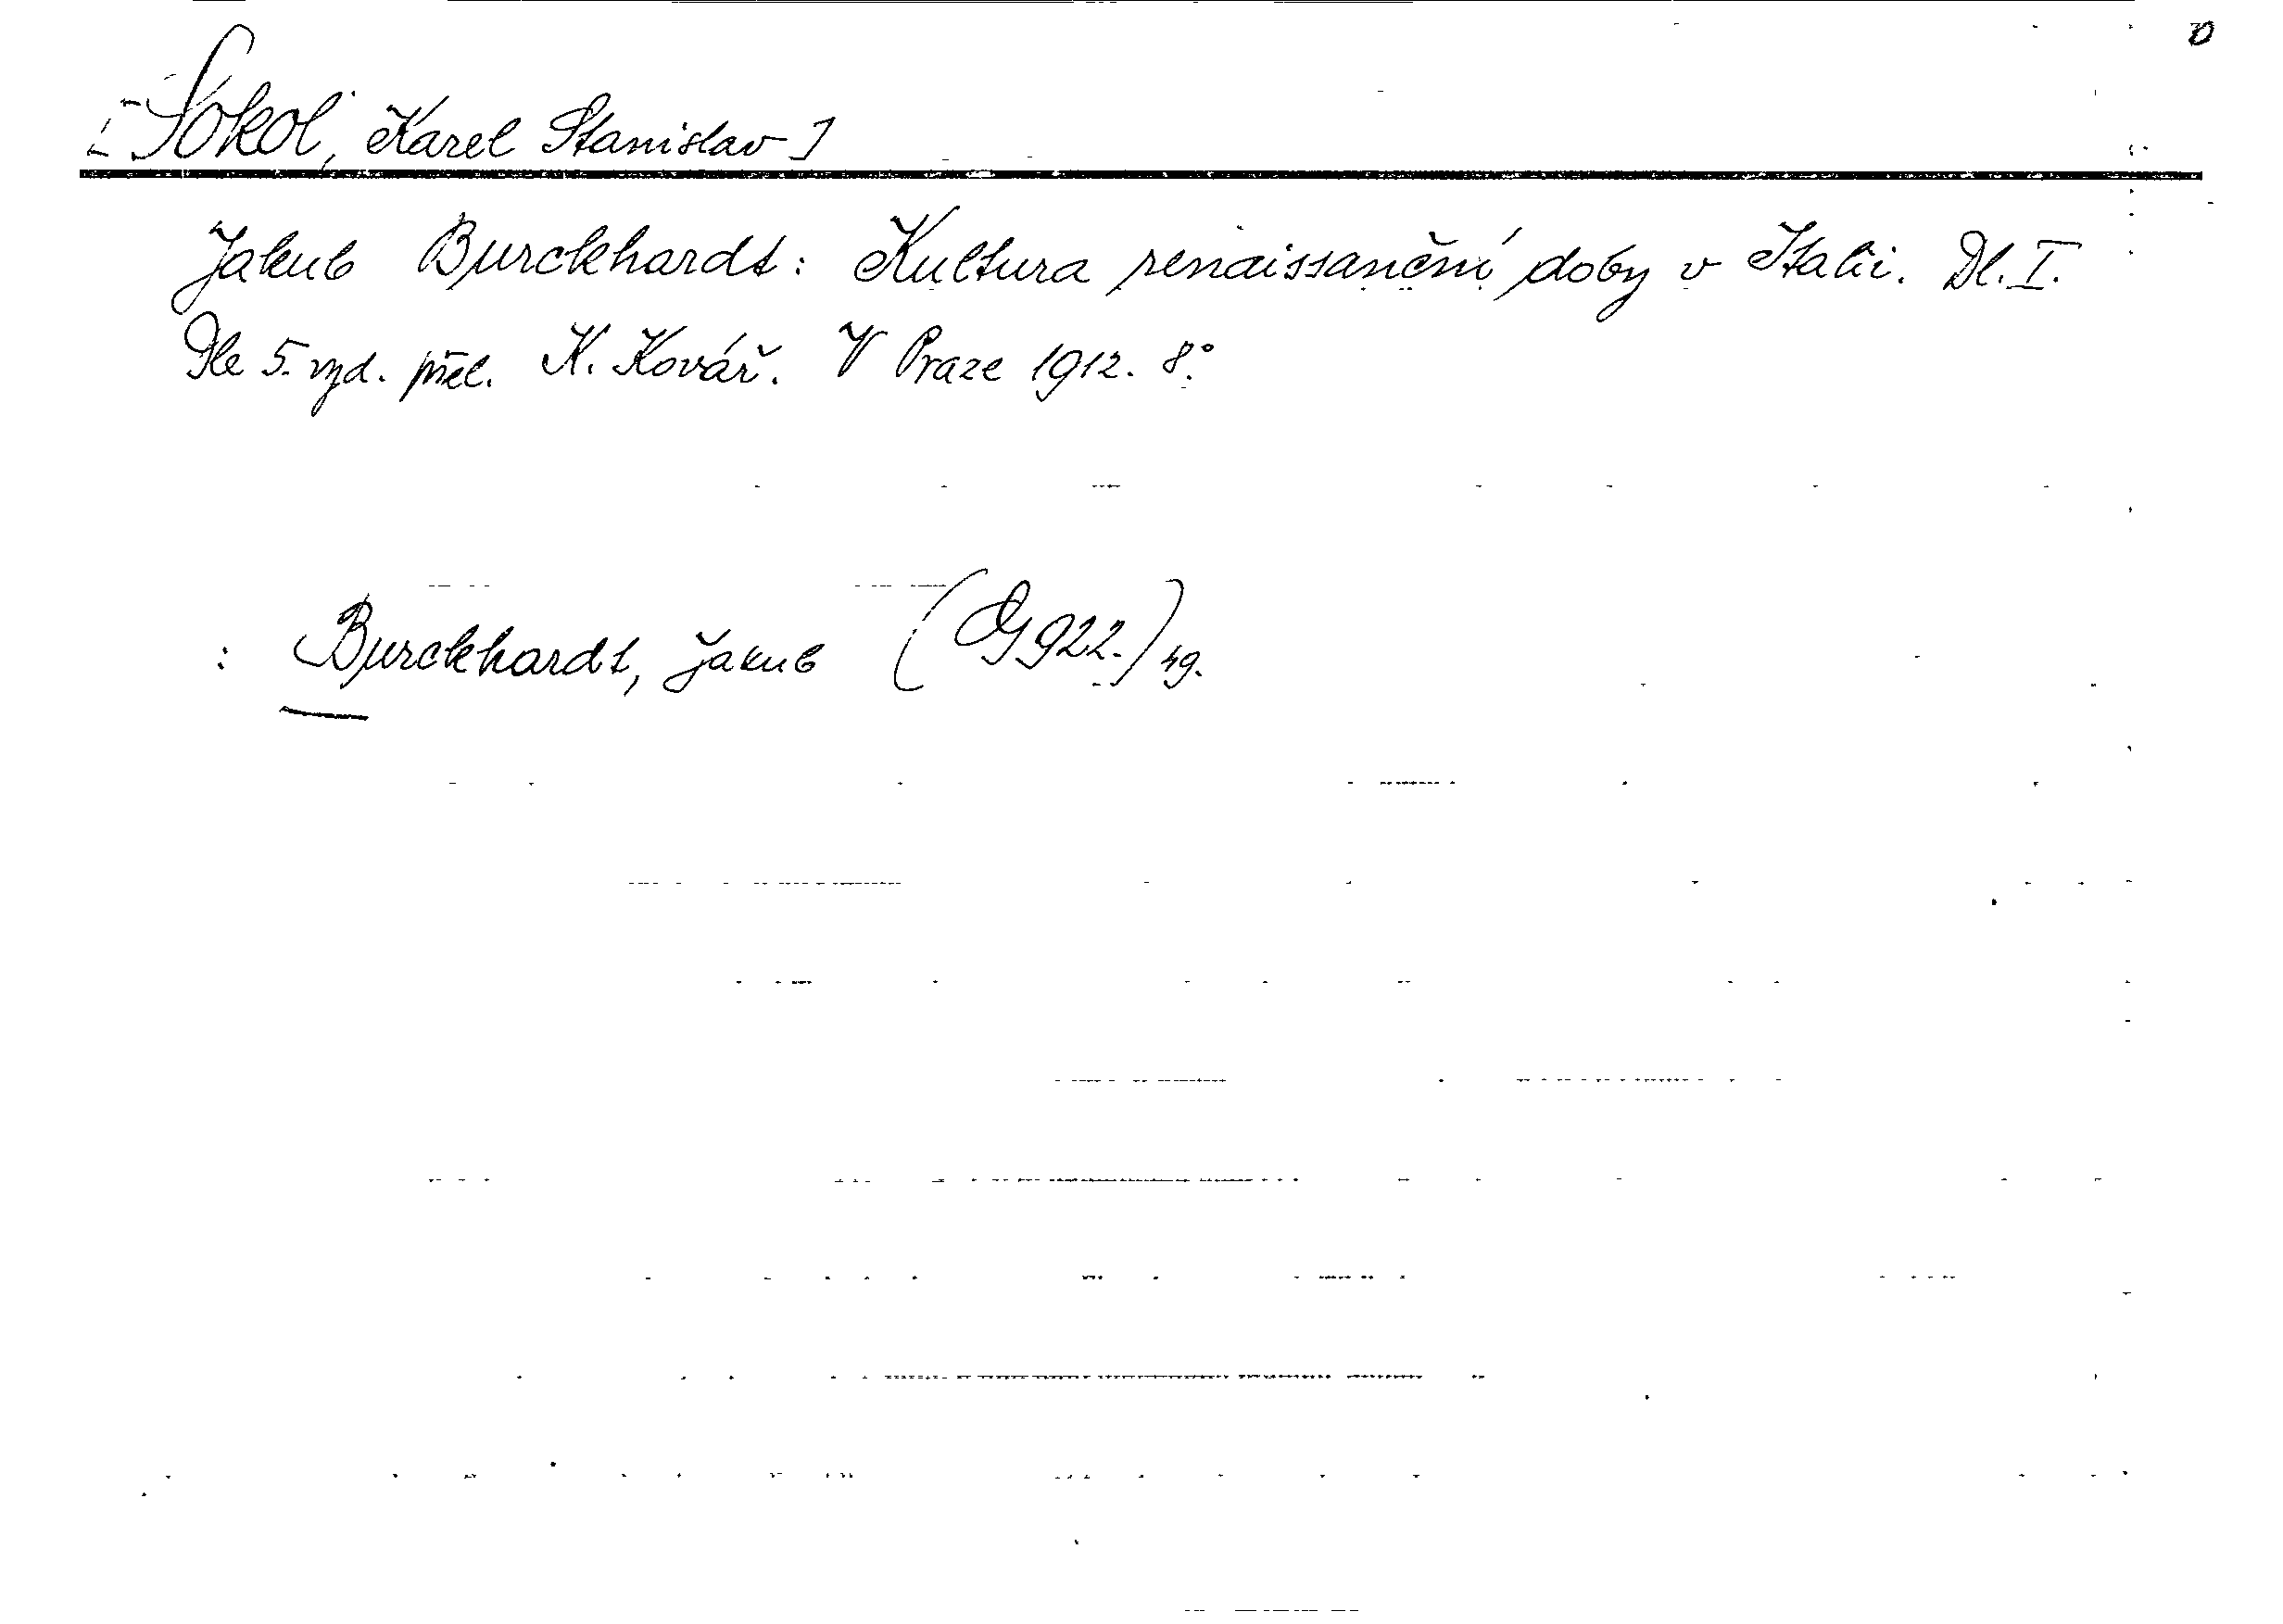 [Sokol, Karel Stanislav]
Jakub Burckhardt: Kultura renaissanční doby v Italii. Dl. I.
Dle 5. vyd. přel. K. Kovář. V Praze 1912. 8°.
: Burckhardt, Jakub (G 922.)